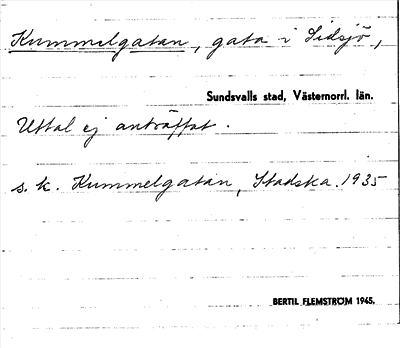 Kummelgatan, gata i Sidsjö,
Sundsvalls stad, Västernorrl. län.
Uttal ej anträffat.
s. k. Kummelgatan, Stadska. 1935
BERTIL FLEMSTRÖM 1945.